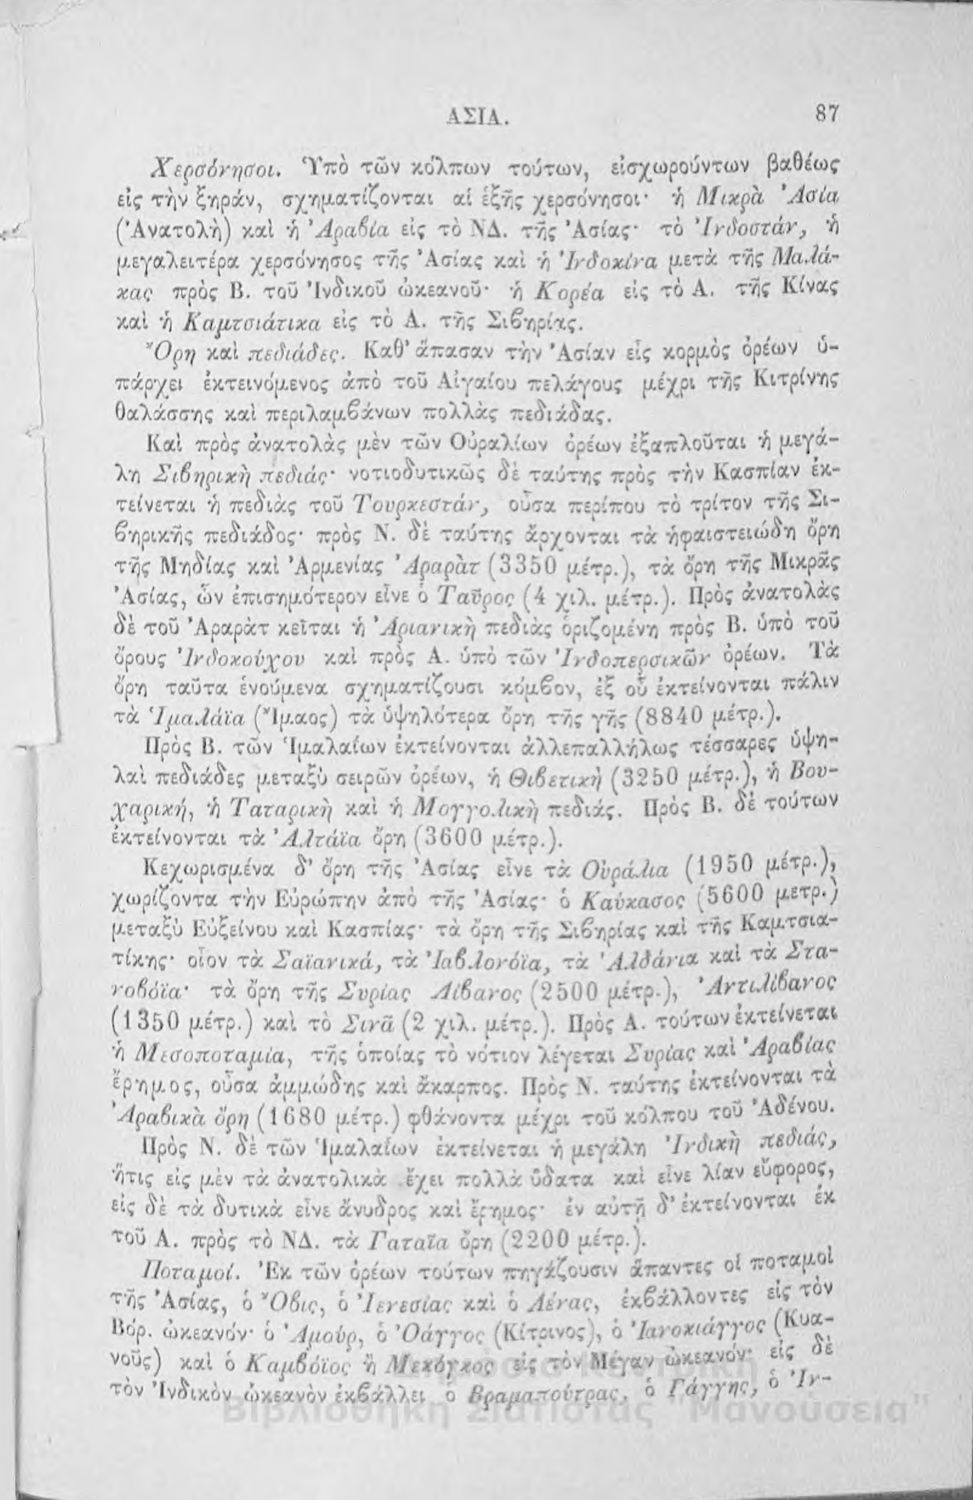 ΑΣΙΑ. 87
Χερσόνησοι. Ὑπὸ τῶν κόλπων τούτων, εἰσχωρούντων βαθέως
εἰς τὴν ξηράν, σχηματίζονται αἱ ἑξῆς χερσόνησοι· ἡ Μικρὰ Ἀσία
(Ἀνατολὴ) καὶ ἡ Ἀραβία εἰς τὸ ΝΔ. τῆς Ἀσίας· τὸ Ἰνδοστάν, ἡ
μεγαλειτέρα χερσόνησος τῆς Ἀσίας καὶ ἡ Ἰνδοκίνα μετὰ τῆς Μαλάκ-
κας πρὸς Β. τοῦ Ἰνδικοῦ ὠκεανοῦ· ἡ Κορέα εἰς τὸ Α. τῆς Κίνας
καὶ ἡ Καμτσιάτικα εἰς τὸ Α. τῆς Σιβηρίας.
Ὄρη καὶ πεδιάδες. Καθ' ἅπασαν τὴν Ἀσίαν εἷς κορμὸς ὀρέων ὑ-
πάρχει ἐκτεινόμενος ἀπὸ τοῦ Αἰγαίου πελάγους μέχρι τῆς Κιτρίνης
θαλάσσης καὶ περιλαμβάνων πολλὰς πεδιάδας.
Καὶ πρὸς ἀνατολὰς μὲν τῶν Οὐραλίων ὀρέων ἐξαπλοῦται ἡ μεγά-
λη Σιβηρικὴ πεδιάς· νοτιοδυτικῶς δὲ ταύτης πρὸς τὴν Κασπίαν ἐκ-
τείνεται ἡ πεδιὰς τοῦ Τουρκεστάν, οὖσα περίπου τὸ τρίτον τῆς Σι-
βηρικῆς πεδιάδος· πρὸς Ν. δὲ ταύτης ἄρχονται τὰ ἡφαιστειώδη ὄρη
τῆς Μηδίας καὶ Ἀρμενίας Ἀραρὰτ (3350 μέτρ.), τὰ ὄρη τῆς Μικρᾶς
Ἀσίας, ὧν ἐπισημότερον εἶνε ὁ Ταῦρος (4 χιλ. μέτρ.). Πρὸς ἀνατολὰς
δὲ τοῦ Ἀραρὰτ κεῖται ἡ Ἀριανικὴ πεδιὰς ὁριζομένη πρὸς Β. ὑπὸ τοῦ
ὄρους Ἰνδοκούχου καὶ πρὸς Α. ὑπὸ τῶν Ἰνδοπερσικῶν ὀρέων. Τὰ
ὄρη ταῦτα ἑνούμενα σχηματίζουσι κόμβον, ἐξ οὗ ἐκτείνονται πάλιν
τὰ Ἱμαλάϊα (Ἴμαος) τὰ ὑψηλότερα ὄρη τῆς γῆς (8840 μέτρ.).
Πρὸς Β. τῶν Ἱμαλαίων ἐκτείνονται ἀλλεπαλλήλως τέσσαρες ὑψη-
λαὶ πεδιάδες μεταξὺ σειρῶν ὀρέων, ἡ Θιβετικὴ (3250 μέτρ.), ἡ Βου-
χαρική, ἡ Ταταρικὴ καὶ ἡ Μογγολικὴ πεδιάς. Πρὸς Β. δὲ τούτων
ἐκτείνονται τὰ Ἀλτάϊα ὄρη (3600 μέτρ.).
Κεχωρισμένα δ' ὄρη τῆς Ἀσίας εἶνε τὰ Οὐράλια (1950 μέτρ.),
χωρίζοντα τὴν Εὐρώπην ἀπὸ τῆς Ἀσίας· ὁ Καύκασος (5600 μετρ.)
μεταξὺ Εὐξείνου καὶ Κασπίας· τὰ ὄρη τῆς Σιβηρίας καὶ τῆς Καμτσια-
τίκης· οἷον τὰ Σαϊανικά, τὰ Ἰαβλονόϊα, τὰ Ἀλδάνια καὶ τὰ Στα-
νοβόϊα· τὰ ὄρη τῆς Συρίας Λίβανος (2500 μέτρ.), Ἀντιλίβανος
(1350 μέτρ.) καὶ τὸ Σινᾶ (2 χιλ. μέτρ.). Πρὸς Α. τούτων ἐκτείνεται
ἡ Μεσοποταμία, τῆς ὁποίας τὸ νότιον λέγεται Συρίας καὶ Ἀραβίας
ἔρημος, οὖσα ἀμμώδης καὶ ἄκαρπος. Πρὸς Ν. ταύτης ἐκτείνονται τὰ
Ἀραβικὰ ὄρη (1680 μέτρ.) φθάνοντα μέχρι τοῦ κόλπου τοῦ Ἀδένου.
Πρὸς Ν. δὲ τῶν Ἱμαλαίων ἐκτείνεται ἡ μεγάλη Ἰνδικὴ πεδιάς,
ἥτις εἰς μὲν τὰ ἀνατολικὰ ἔχει πολλὰ ὕδατα καὶ εἶνε λίαν εὔφορος,
εἰς δὲ τὰ δυτικὰ εἶνε ἄνυδρος καὶ ἔρημος· ἐν αὐτῇ δ' ἐκτείνονται ἐκ
τοῦ Α. πρὸς τὸ ΝΔ. τὰ Γαταῖα ὄρη (2200 μέτρ.).
Ποταμοί. Ἐκ τῶν ὀρέων τούτων πηγάζουσιν ἅπαντες οἱ ποταμοὶ
τῆς Ἀσίας, ὁ Ὄβις, ὁ Ἰενεσίας καὶ ὁ Λένας, ἐκβάλλοντες εἰς τὸν
Βόρ. ὠκεανόν· ὁ Ἀμούρ, ὁ Ὁάγγος (Κίτρινος), ὁ Ἰανοκιάγγος (Κυα-
νοῦς) καὶ ὁ Καμβόϊος ἢ Μεκόγκος εἰς τὸν Μέγαν ὠκεανόν· εἰς δὲ
τὸν Ἰνδικὸν ὠκεανὸν ἐκβάλλει ὁ Βραμαπούτρας, ὁ Γάγγης, ὁ Ἰν-
Δημόσια Κεντρική
Βιβλιοθήκη Σιάτιστας "Μανούσεια"